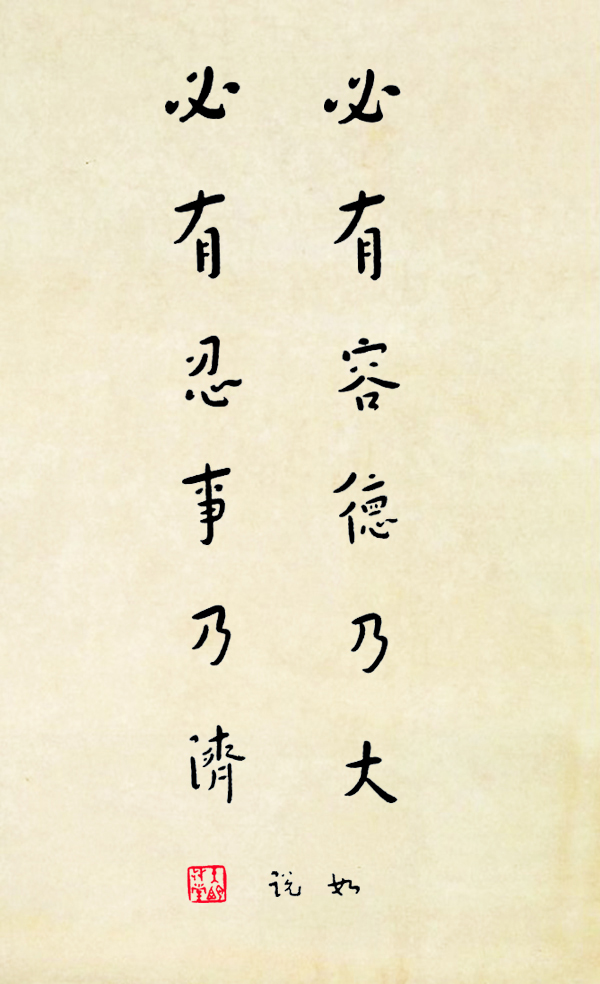 必有容德乃大
必有忍事乃濟
如说